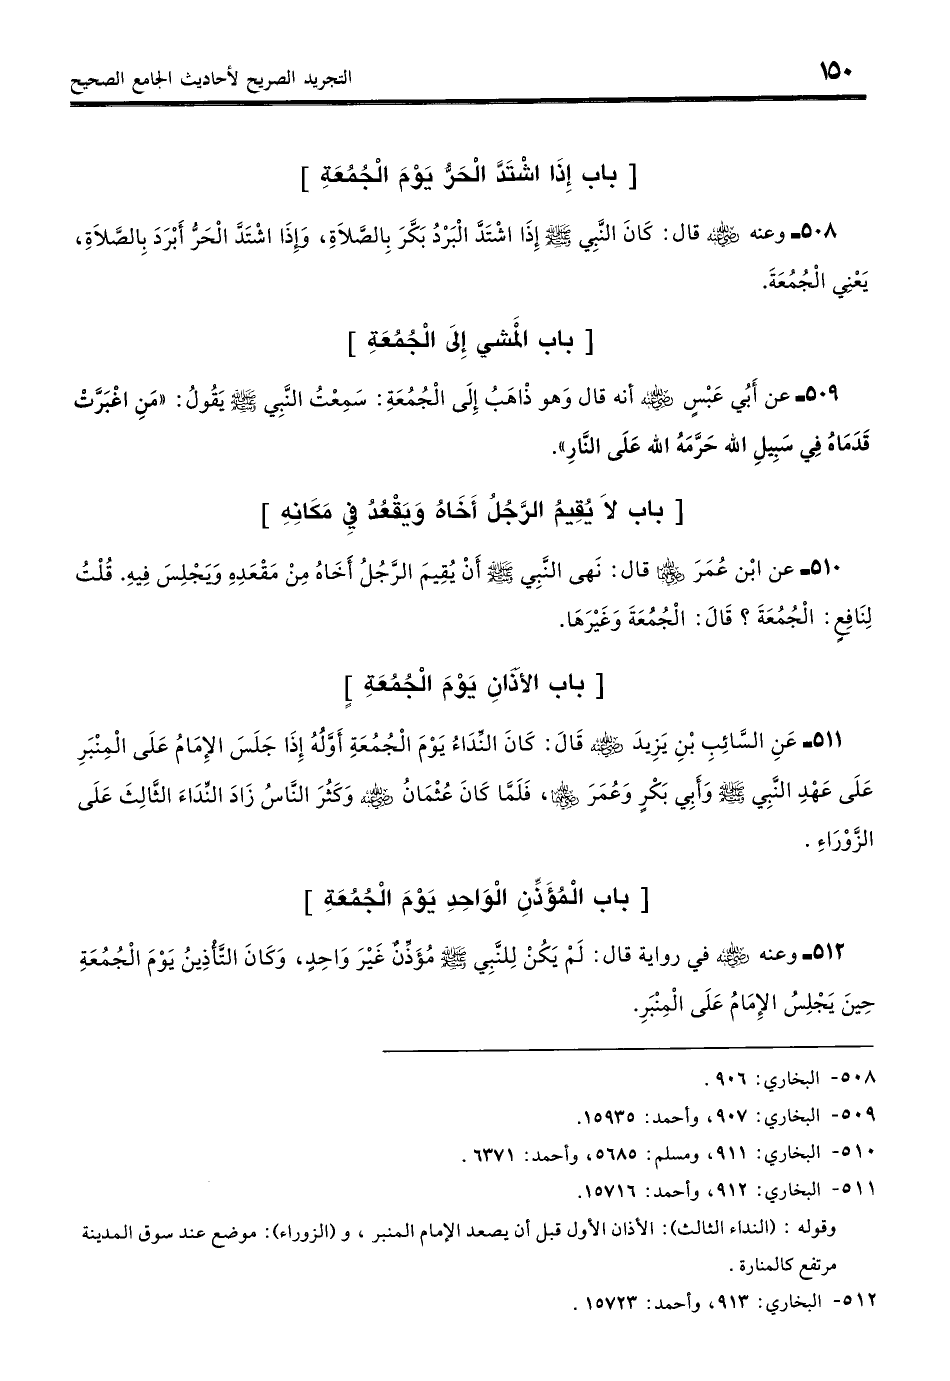 ١٥٠
التجريد الصريح لأحاديث الجامع الصحيح
[ باب إِذَا اشْتَدَّ الْحَرُّ يَوْمَ الْجُمُعَةِ ]
٥٠٨ـ وعنه ﷺ قال: كَانَ النَّبِي ﷺ إِذَا اشْتَدَّ الْبَرْدُ بَكَّرَ بِالصَّلاَةِ، وَإِذَا اشْتَدَّ الْحَرُّ أَبْرَدَ بِالصَّلاَةِ،
يَعْنِي الْجُمُعَةَ.
[ باب الْمَشي إِلَى الْجُمُعَةِ ]
٥٠٩ـ عن أَبُي عَبْسٍ رضي الله عنه أنه قال وَهو ذْاهَبُ إِلَى الْجُمُعَةِ: سَمِعْتُ النَّبِي ﷺ يَقُولُ: «مَنِ اغْبَرَّتْ
قَدَمَاهُ فِي سَبِيلِ الله حَرَّمَهُ الله عَلَى النَّارِ».
[ باب لاَ يُقِيمُ الرَّجُلُ أَخَاهُ وَيَقْعُدُ فِي مَكَانِهِ ]
٥١٠ـ عن ابْن عُمَرَ رضي الله عنهما قال: نَهى النَّبِي ﷺ أَنْ يُقِيمَ الرَّجُلُ أَخَاهُ مِنْ مَقْعَدِهِ وَيَجْلِسَ فِيهِ. قُلْتُ
لِنَافِعٍ: الْجُمُعَةَ ؟ قَالَ: الْجُمُعَةَ وَغَيْرَهَا.
[ باب الأَذَانِ يَوْمَ الْجُمُعَةِ ]
٥١١ـ عَنِ السَّائِبِ بْنِ يَزِيدَ رضي الله عنه قَالَ: كَانَ النِّدَاءُ يَوْمَ الْجُمُعَةِ أَوَّلُهُ إِذَا جَلَسَ الإِمَامُ عَلَى الْمِنْبَرِ
عَلَى عَهْدِ النَّبِي ﷺ وَأَبِي بَكْرٍ وَعُمَرَ رضي الله عنهما، فَلَمَّا كَانَ عُثْمَانُ رضي الله عنه وَكَثُرَ النَّاسُ زَادَ النِّدَاءَ الثَّالِثَ عَلَى
الزَّوْرَاءِ .
[ باب الْمُؤَذِّنِ الْوَاحِدِ يَوْمَ الْجُمُعَةِ ]
٥١٢ـ وعنه رضي الله عنه في رواية قال: لَمْ يَكُنْ لِلنَّبِي ﷺ مُؤَذِّنٌ غَيْرَ وَاحِدٍ، وَكَانَ التَّأْذِينُ يَوْمَ الْجُمُعَةِ
حِينَ يَجْلِسُ الإِمَامُ عَلَى الْمِنْبَرِ.
٥٠٨- البخاري: ٩٠٦ .
٥٠٩- البخاري: ٩٠٧، وأحمد: ١٥٩٣٥.
٥١٠- البخاري: ٩١١، ومسلم: ٥٦٨٥، وأحمد: ٦٣٧١ .
٥١١- البخاري: ٩١٢، وأحمد: ١٥٧١٦.
وقوله : (النداء الثالث): الأذان الأول قبل أن يصعد الإمام المنبر ، و (الزوراء): موضع عند سوق المدينة
مرتفع كالمنارة .
٥١٢- البخاري: ٩١٣، وأحمد: ١٥٧٢٣ .